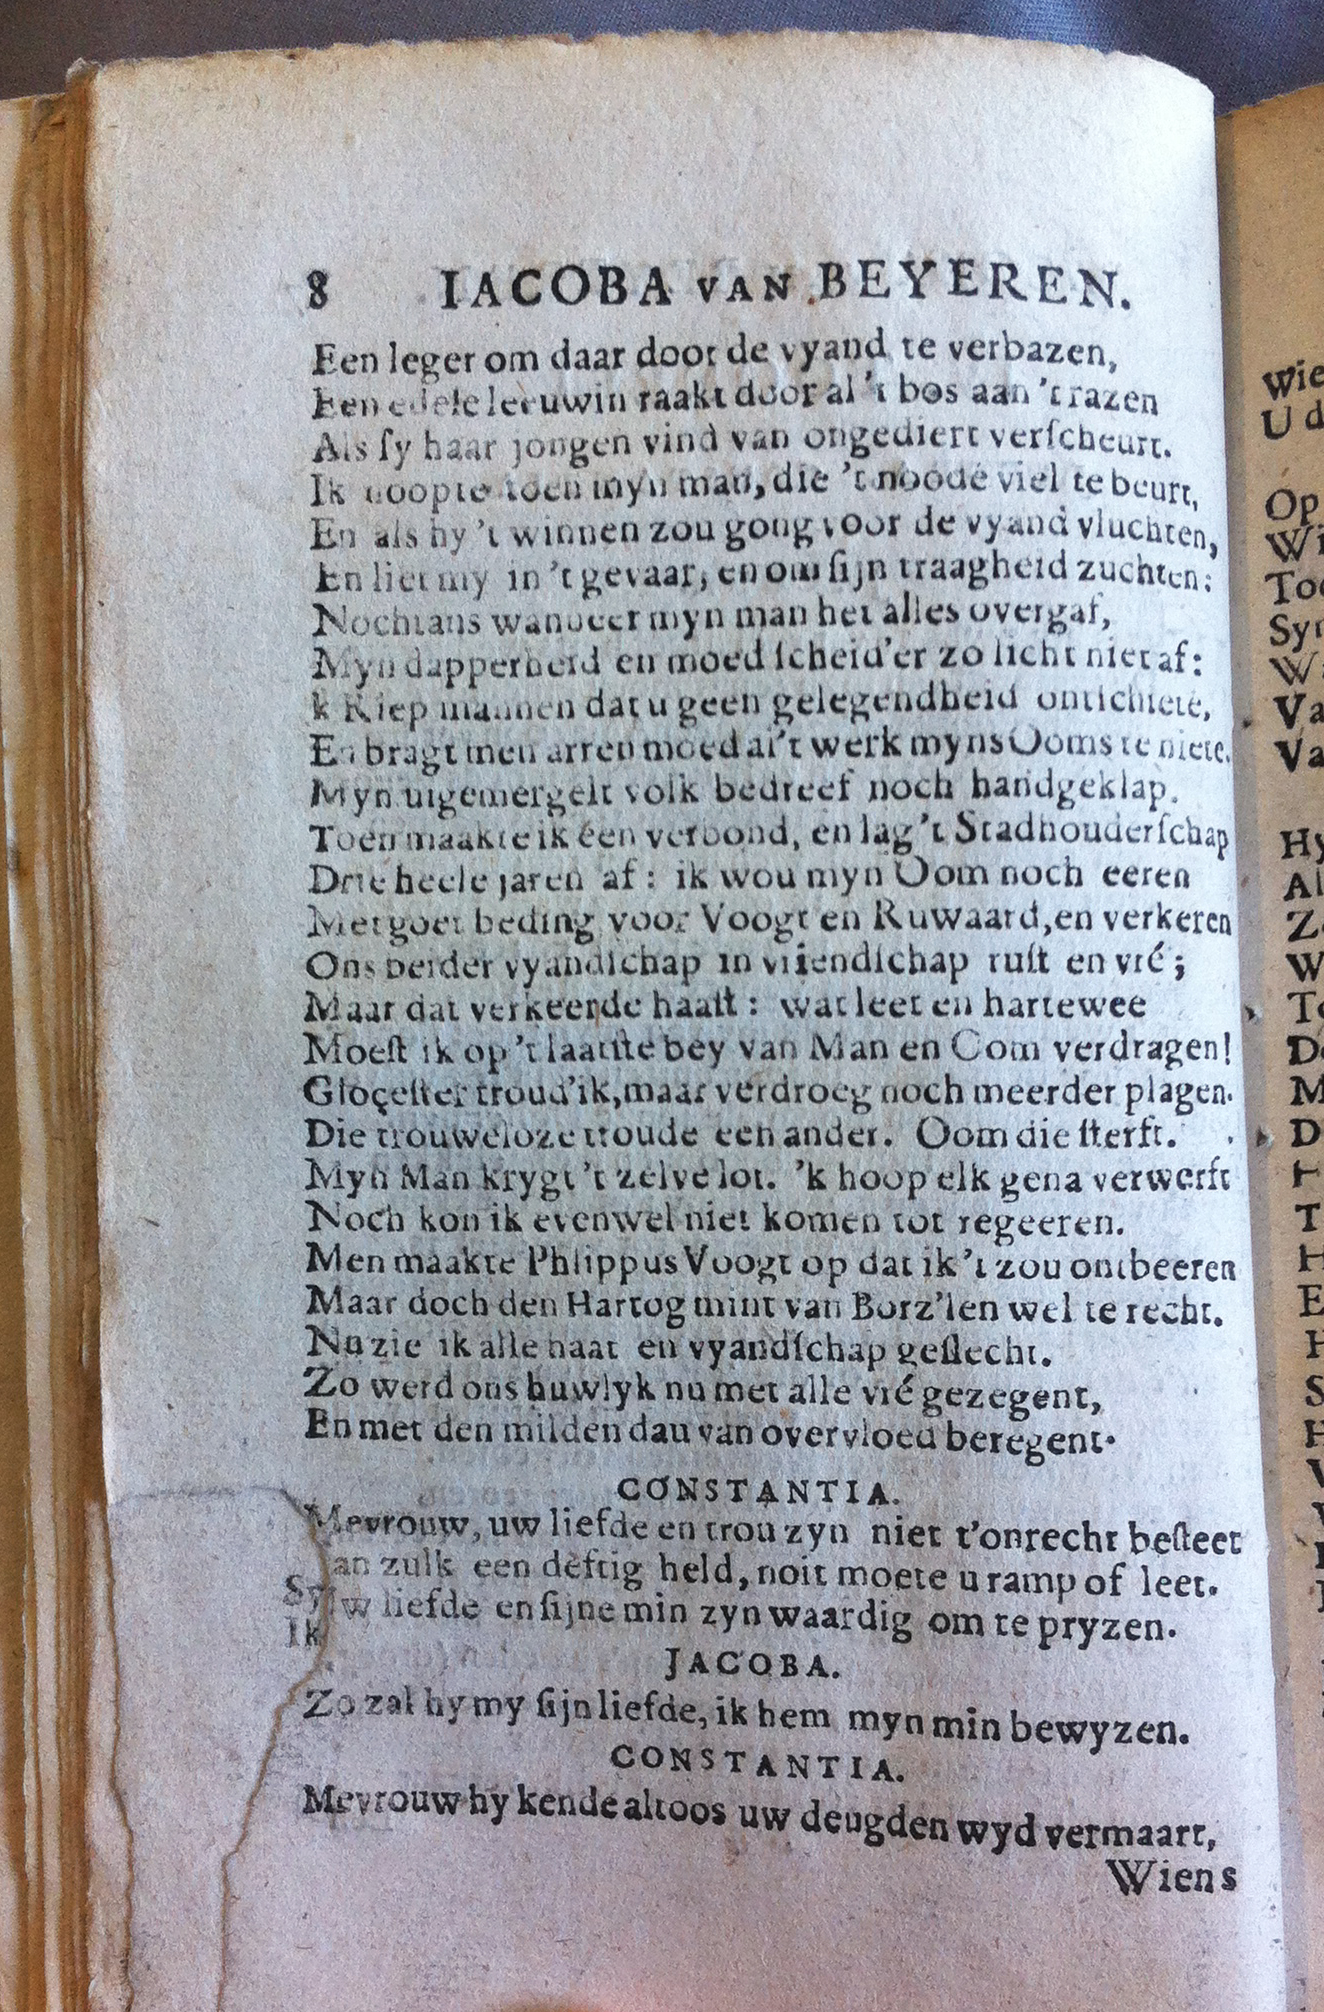 8 IACOBA VAN BEYEREN.
Een leger om daar door de vyand te verbazen,
Een edele leeuwin raakt door al 't bos aan 't razen
Als sy haar jongen vind van ongediert verscheurt.
Ik noopte toen myn man, die 't noode viel te beurt,
En als hy 't winnen zou gong voor de vyand vluchten,
En liet my in 't gevaar, en om sijn traagheid zuchten:
Nochtans wanneer myn man het alles overgaf,
Myn dapperheid en moed scheid'er zo licht niet af:
k Riep mannen dat u geen gelegendheid ontschiete,
En bragt men arren moed al't werk myns Ooms te niete.
Myn uigemergelt volk bedreef noch handgeklap.
Toen maakte ik een verbond, en lag 't Stadhouderschap
Drie heele jaren af: ik wou myn Oom noch eeren
Met goet beding voor Voogt en Ruwaard, en verkeren
Ons beider vyandschap in vriendschap rust en vré;
Maar dat verkeerde haast: wat leet en hartewee
Moest ik op 't laatste bey van Man en Oom verdragen!
Gloçester troud'ik, maar verdroeg noch meerder plagen.
Die trouweloze troude een ander. Oom die sterft.
Myn Man krygt 't zelve lot. 'k hoop elk gena verwerft
Noch kon ik evenwel niet komen tot regeeren.
Men maakte Phlippus Voogt op dat ik 't zou ontbeeren
Maar doch den Hartog mint van Borz'len wel te recht.
Nu zie ik alle haat en vyandschap geslecht.
Zo werd ons huwlyk nu met alle vré gezegent,
En met den milden dau van overvloed beregent.
CONSTANTIA.
Mevrouw, uw liefde en trou zyn niet t'onrecht besteet
an zulk een deftig held, noit moete u ramp of leet.
Sy w liefde en sijne min zyn waardig om te pryzen.
Ik
JACOBA.
Zo zal hy my sijn liefde, ik hem myn min bewyzen.
CONSTANTIA.
Mevrouw hy kende altoos uw deugden wyd vermaart,
Wiens